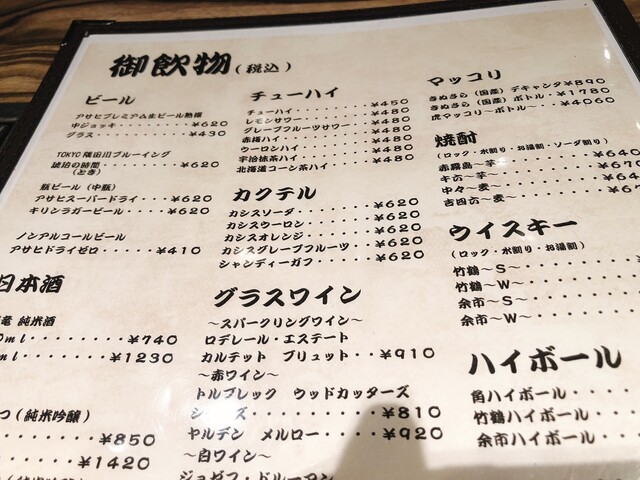 御飲物(税込)
ビール
アサヒプレミアム生ビール熟撰
中ジョッキ・・・・・・・¥620
グラス・・・・・・・・・¥430
TOKYO隅田川ブルーイング
琥珀の時間・・・・・・・¥620
(とき)
瓶ビール(中瓶)
アサヒスーパードライ・・・¥620
キリンラガービール・・・・¥620
ノンアルコールビール
アサヒドライゼロ・・・・・¥410
日本酒
竜 純米酒
ml・・・・・・・・¥740
ml・・・・・・・・¥1230
つ(純米吟醸)
・・・・・・・¥850
・・・・・・¥1420
チューハイ
チューハイ・・・・・・・・¥450
レモンサワー・・・・・・・¥480
グレープフルーツサワー・・¥480
赤梅ハイ・・・・・・・・・¥480
ウーロンハイ・・・・・・・¥480
宇治抹茶ハイ・・・・・・・¥480
北海道コーン茶ハイ・・・・¥480
カクテル
カシスソーダ・・・・・・・¥620
カシスウーロン・・・・・・¥620
カシスオレンジ・・・・・・¥620
カシスグレープフルーツ・・¥620
シャンディーガフ・・・・・¥620
グラスワイン
～スパークリングワイン～
ロデレール・エステート
カルテット ブリュット・・¥910
～赤ワイン～
トルブレック ウッドカッターズ
シ ズ・・・・・・・・¥810
ヤルデン メルロー・・・・¥920
～白ワイン～
ジョゼフ・ドルーマン
マッコリ
きぬさら(国産)デキャンタ¥890
きぬさら(国産)ボトル・¥1780
虎マッコリ～ボトル～・・¥4060
焼酎
(ロック・水割り・お湯割り・ソーダ割り)
赤霧島～芋～・・・・・・¥640
キ六～芋～・・・・・・・¥670
中々～麦～・・・・・・・¥6
吉四六～麦～・・・・・・¥
ウイスキー
(ロック・水割り・お湯割)
竹鶴～S～・・・・・・・
竹鶴～W～・・・・・・・
余市～S～・・・・・・・
余市～W～・・・・・・・
ハイボール
角ハイボール・・・・
竹鶴ハイボール・・・
余市ハイボール・・・